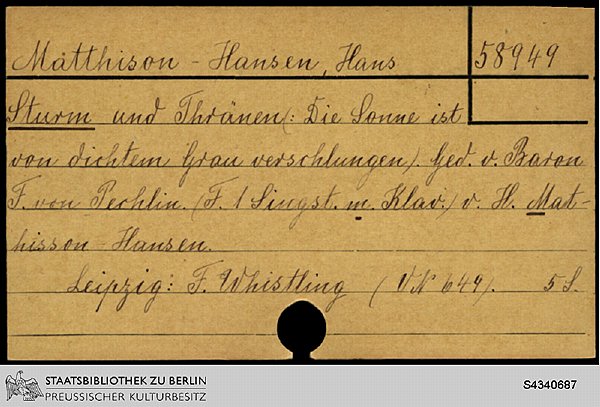 Matthison-Hansen, Hans
58949
Sturm und Thränen (: Die Sonne ist
von dichtem Grau verschlungen). Ged. v. Baron
F. von Pechlin. (F. 1 Singst. m. Klav.) v. H. Mat-
thisson-Hansen.
Leipzig: F. Whistling (VN 649). 5 S.
STAATSBIBLIOTHEK ZU BERLIN
PREUSSISCHER KULTURBESITZ
S4340687